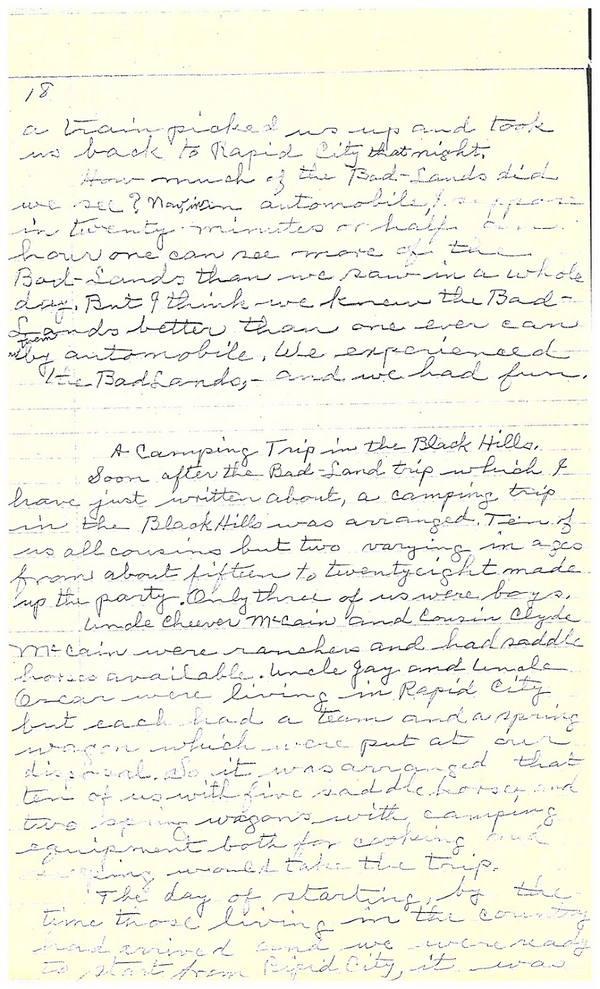 18
a train picked us up and took
us back to Rapid City that night.
How much of the Bad-Lands did
we see? Now in an automobile, I suppose
in twenty minutes or half an
hour one can see more of the
Bad-Lands than we saw in a whole
day. But I think we knew the Bad-
Lands better than one ever can
by automobile. We experienced
the Bad Lands, - and we had fun.
A Camping Trip in the Black Hills.
Soon after the Bad-Land trip which I
have just written about, a camping trip
in the Black Hills was arranged. Ten of
us all cousins but two varying in ages
from about fifteen to twentyeight made
up the party. Only three of us were boys.
Uncle Cheever McCain and Cousin Clyde
McCain were ranchers and had saddle
horses available. Uncle Jay and Uncle
Oscar were living in Rapid City
but each had a team and a spring
wagon which were put at our
disposal. So it was arranged that
ten of us with five saddle horses and
two spring wagons with camping
equipment both for cooking and
sleeping would take the trip.
The day of starting, by the
time those living in the country
had arrived and we were ready
to start from Rapid City, it was